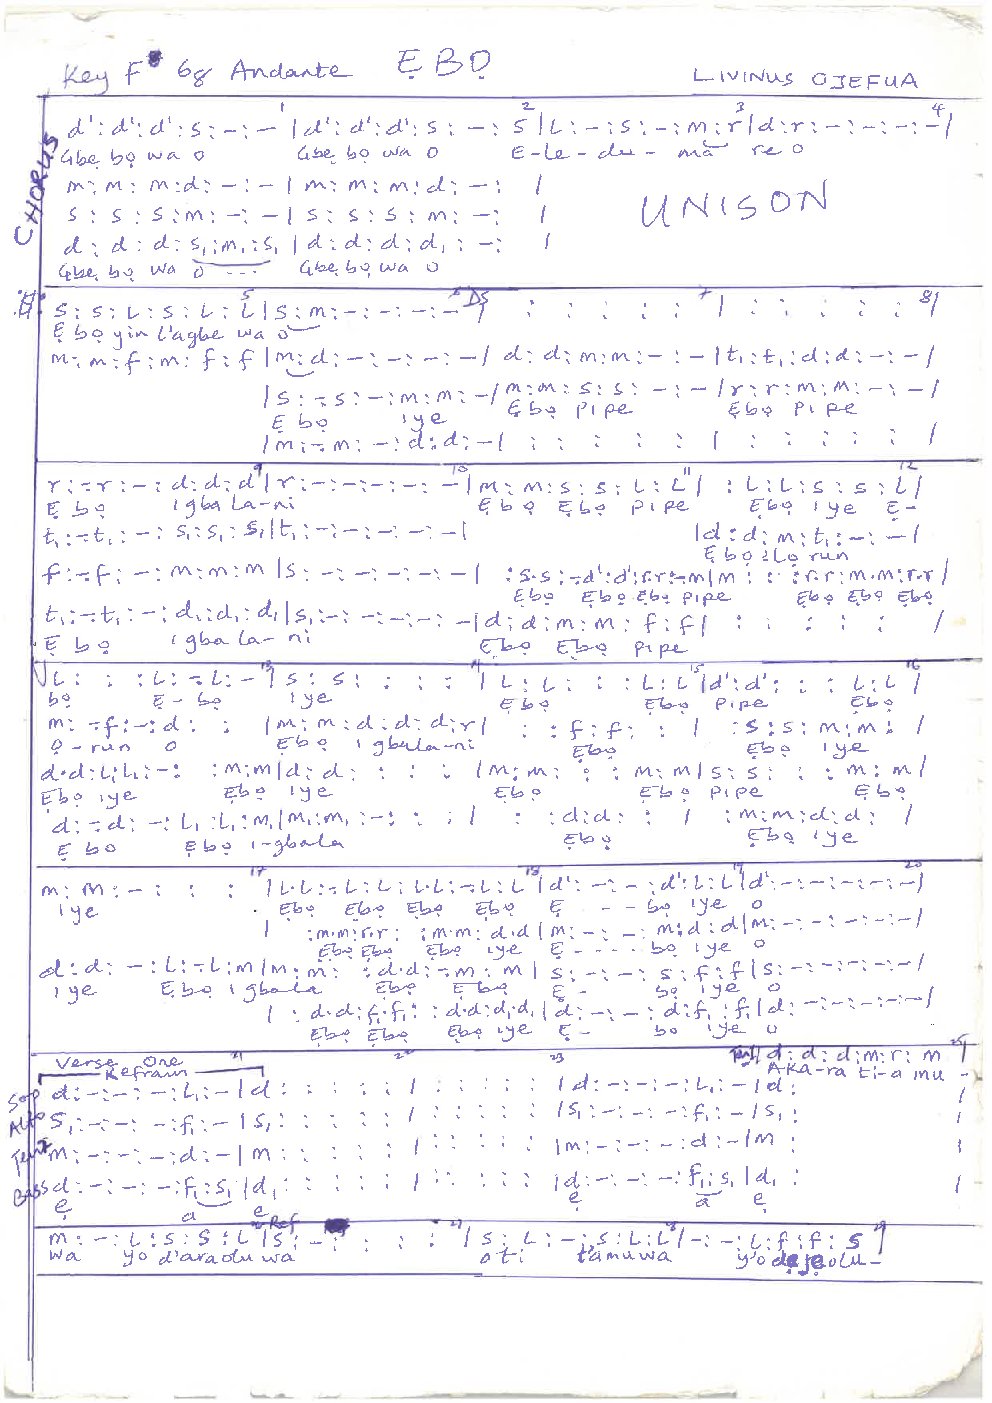 Key F 68 Andante ẸBỌ LIVINUS OJEFUA
1 2 3 4
CHORUS
d': d': d': s: -: - | d': d': d': s: -: s | L: -: s: -: m: r | d: r: -: -: -: - |
Gbẹ bọ wa o Gbẹ bọ wa o E-le-du- ma re o
m: m: m: d: -: - | m: m: m: d: -: |
s: s: s: m: -: - | s: s: s: m: -: | UNISON
d: d: d: s₁: m₁: s₁ | d: d: d: d₁: -: |
Gbẹ bọ wa o --- Gbẹ bọ wa o
5 6 DS 7 8
s: s: L: s: L: L | s: m: -: -: -: - | : : : : : | : : : : : |
Ẹ bọ yin l'agbe wa o
m: m: f: m: f: f | m: d: -: -: -: - | d: d: m: m: -: - | t₁: t₁: d: d: -: - |
| s: -: s: -: m: m: - | m: m: s: s: -: - | r: r: m: m: -: - |
Ẹ bọ iye Ẹbọ pipe Ẹbọ pipe
| m: -: m: -: d: d: - | : : : : : | : : : : : |
9 10 11 12
r: -: r: -: d: d: d | r: -: -: -: -: - | m: m: s: s: L: L | : L: L: s: s: L |
Ẹ bọ igba la-ni Ẹbọ Ẹbọ pipe Ẹbọ iye Ẹ-
t₁: -: t₁: -: s₁: s₁: s₁ | t₁: -: -: -: -: - | | d: d: m: t₁: -: - |
Ẹbọ ọlọrun
f: -: f: -: m: m: m | s: -: -: -: -: - | : s.s: -d': d'.r: r: -m | m : : : r.r: m.m: r.r |
Ẹbọ Ẹbọ Ẹbọ pipe Ẹbọ Ẹbọ Ẹbọ
t₁: -: t₁: -: d₁: d₁: d₁ | s₁: -: -: -: -: - | d: d: m: m: f: f | : : : : : |
Ẹ bọ igbala-ni Ẹbọ Ẹbọ pipe
13 14 15 16
L: : : L: -: L: - | s: s: : : : | L: L: : : L: L | d': d': : : L: L |
bọ Ẹ-bọ iye Ẹbọ Ẹbọ pipe Ẹbọ
m: -: f: -: d: : | m: m: d: d: d: r | : : f: f: : | : s: s: m: m: |
ọ-run o Ẹbọ igbala-ni Ẹbọ Ẹbọ iye
d.d: L₁: L₁: -: : m: m | d: d: : : : | m: m: : : m: m | s: s: : : m: m |
Ẹbọ iye Ẹbọ iye Ẹbọ Ẹbọ pipe Ẹbọ
d: -: d: -: L₁: L₁: m₁ | m₁: m₁: -: : : | : : d: d: : | : m: m: d: d: |
Ẹ bọ Ẹbọ i-gbala Ẹbọ Ẹbọ iye
17 18 19 20
m: m: -: : : | L.L: -: L: L: L.L: -: L: L | d': -: -: -: d': L: L | d': -: -: -: -: - |
iye Ẹbọ Ẹbọ Ẹbọ Ẹbọ Ẹ - - - bọ iye o
| : m.m: r.r: : m.m: d.d | m: -: -: -: m: d: d | m: -: -: -: -: - |
Ẹbọ Ẹbọ Ẹbọ iye Ẹ - - - - bọ iye o
d: d: -: L₁: -: L₁: m | m₁: m₁: : d.d: -: m: m | s: -: -: -: s: f: f | s: -: -: -: -: - |
iye Ẹbọ igbala Ẹbọ Ẹbọ Ẹ- bọ iye o
| : d.d: f₁.f₁: : d.d: d₁.d₁ | d: -: -: -: d: f₁: f₁ | d: -: -: -: -: - |
Ẹbọ Ẹbọ Ẹbọ iye Ẹ- bọ iye o
Verse One 21 22 23 25
Refrain
Ten | d: d: d: m: r: m |
AKA-ra ti-a mu-
Sop d: -: -: -: L₁: - | d: : : : : | : : : : : | d: -: -: -: L₁: - | d: |
Alto s₁: -: -: -: f₁: - | s₁: : : : : | : : : : : | s₁: -: -: -: f₁: - | s₁: |
Tenor m: -: -: -: d: - | m: : : : : | : : : : : | m: -: -: -: d: - | m : |
Bass d: -: -: -: f₁: s₁ | d₁: : : : : | : : : : : | d: -: -: -: f₁: s₁ | d₁ : |
ẹ a ẹ ẹ a ẹ
Ref 27 28 29
m: -: L: s: s: L | s: -: : : : | s: L: -: s: L: L | -: -: L: f: f: s |
wa yo d'ara olu wa o ti tamuwa y'o dẹjẹ olu-